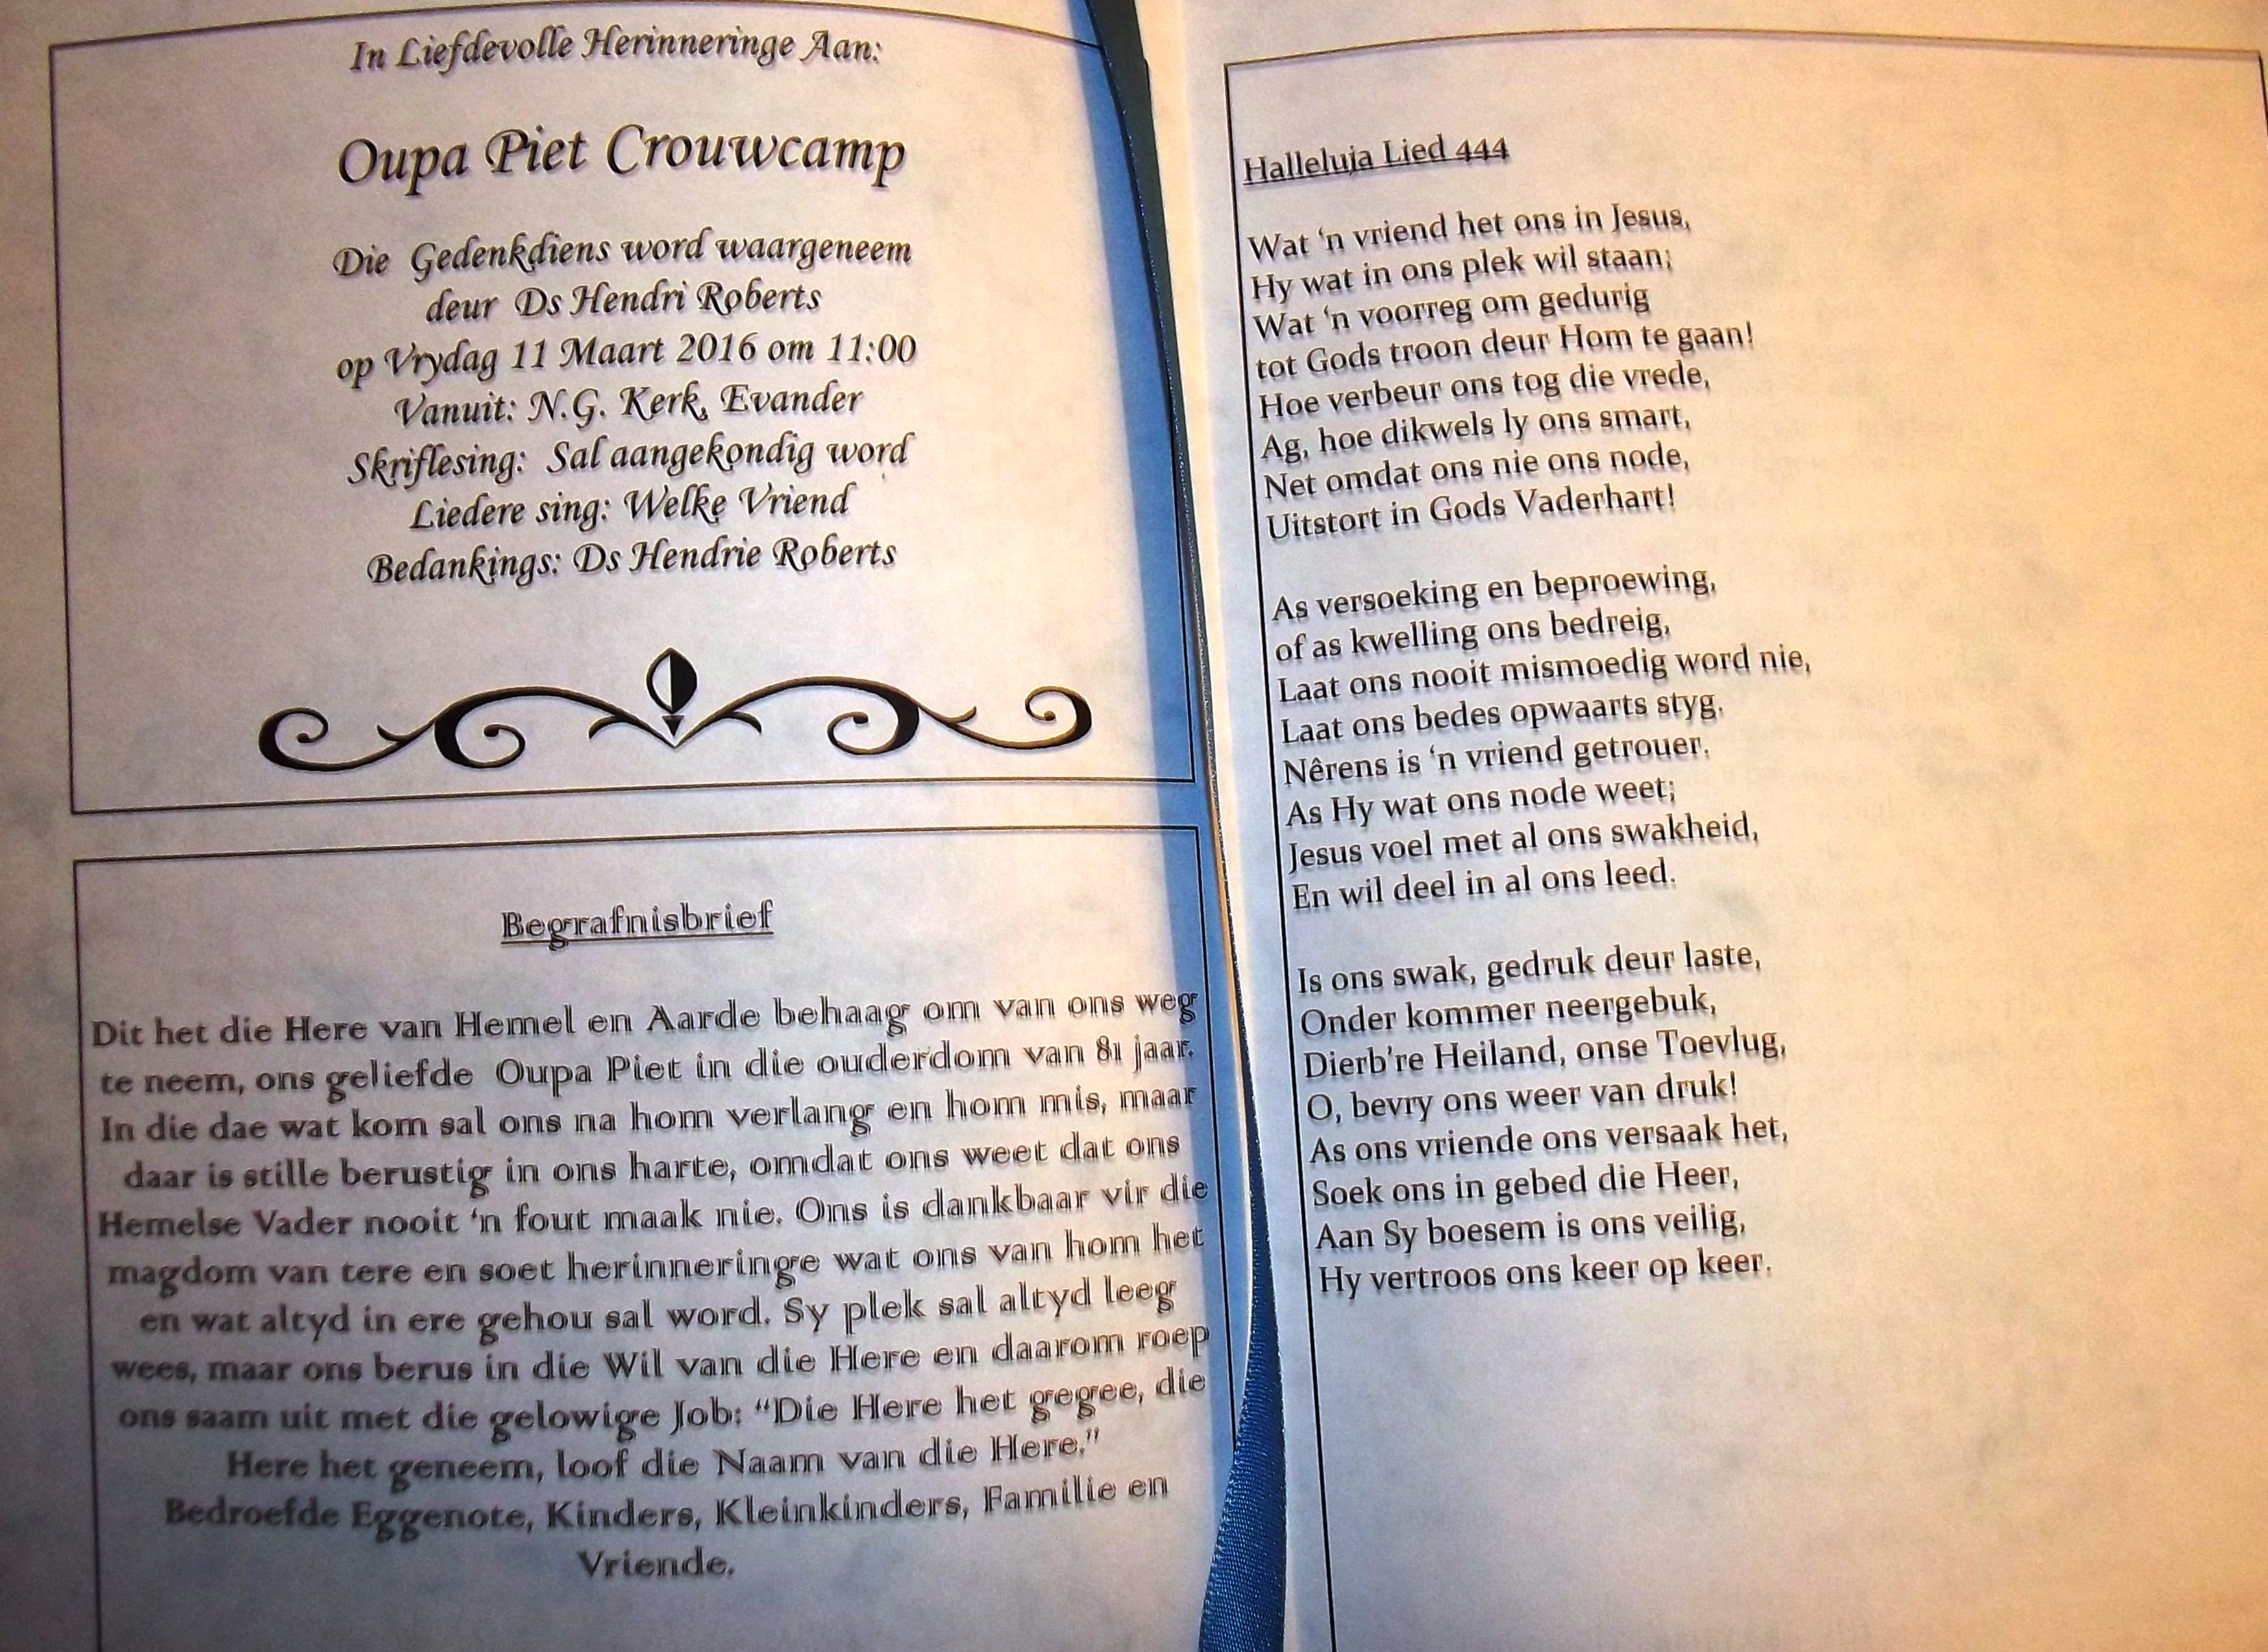 In Liefdevolle Herinneringe Aan:
Oupa Piet Crouwcamp
Die Gedenkdiens word waargeneem
deur Ds Hendri Roberts
op Vrydag 11 Maart 2016 om 11:00
Vanuit: N.G. Kerk, Evander
Skriflesing: Sal aangekondig word
Liedere sing: Welke Vriend
Bedankings: Ds Hendrie Roberts
Begrafnisbrief
Dit het die Here van Hemel en Aarde behaag om van ons weg
te neem, ons geliefde Oupa Piet in die ouderdom van 81 jaar.
In die dae wat kom sal ons na hom verlang en hom mis, maar
daar is stille berustig in ons harte, omdat ons weet dat ons
Hemelse Vader nooit ‘n fout maak nie. Ons is dankbaar vir die
magdom van tere en soet herinneringe wat ons van hom het
en wat altyd in ere gehou sal word. Sy plek sal altyd leeg
wees, maar ons berus in die Wil van die Here en daarom roep
ons saam uit met die gelowige Job: “Die Here het gegee, die
Here het geneem, loof die Naam van die Here.”
Bedroefde Eggenote, Kinders, Kleinkinders, Familie en
Vriende.
Halleluja Lied 444
Wat ‘n vriend het ons in Jesus,
Hy wat in ons plek wil staan;
Wat ‘n voorreg om gedurig
tot Gods troon deur Hom te gaan!
Hoe verbeur ons tog die vrede,
Ag, hoe dikwels ly ons smart,
Net omdat ons nie ons node,
Uitstort in Gods Vaderhart!
As versoeking en beproewing,
of as kwelling ons bedreig,
Laat ons nooit mismoedig word nie,
Laat ons bedes opwaarts styg.
Nêrens is ‘n vriend getrouer.
As Hy wat ons node weet;
Jesus voel met al ons swakheid,
En wil deel in al ons leed.
Is ons swak, gedruk deur laste,
Onder kommer neergebuk,
Dierb’re Heiland, onse Toevlug,
O, bevry ons weer van druk!
As ons vriende ons versaak het,
Soek ons in gebed die Heer,
Aan Sy boesem is ons veilig,
Hy vertroos ons keer op keer.